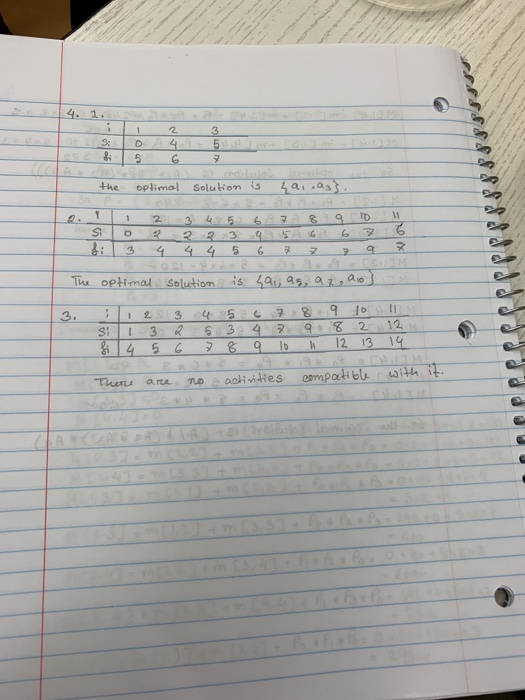 4. 1.
i 1 2 3
si 0 4 5
fi 5 6 7
the optimal solution is {a1, a3}.
2. i 1 2 3 4 5 6 7 8 9 10 11
si 0 2 2 2 3 4 5 6 6 7 6
fi 3 4 4 4 5 6 7 7 7 9 7
The optimal solution is {a1, a5, a7, a10}
3. i 1 2 3 4 5 6 7 8 9 10 11
si 1 3 2 5 3 4 7 9 8 2 12
fi 4 5 6 7 8 9 10 11 12 13 14
There are no activities compatible with it.